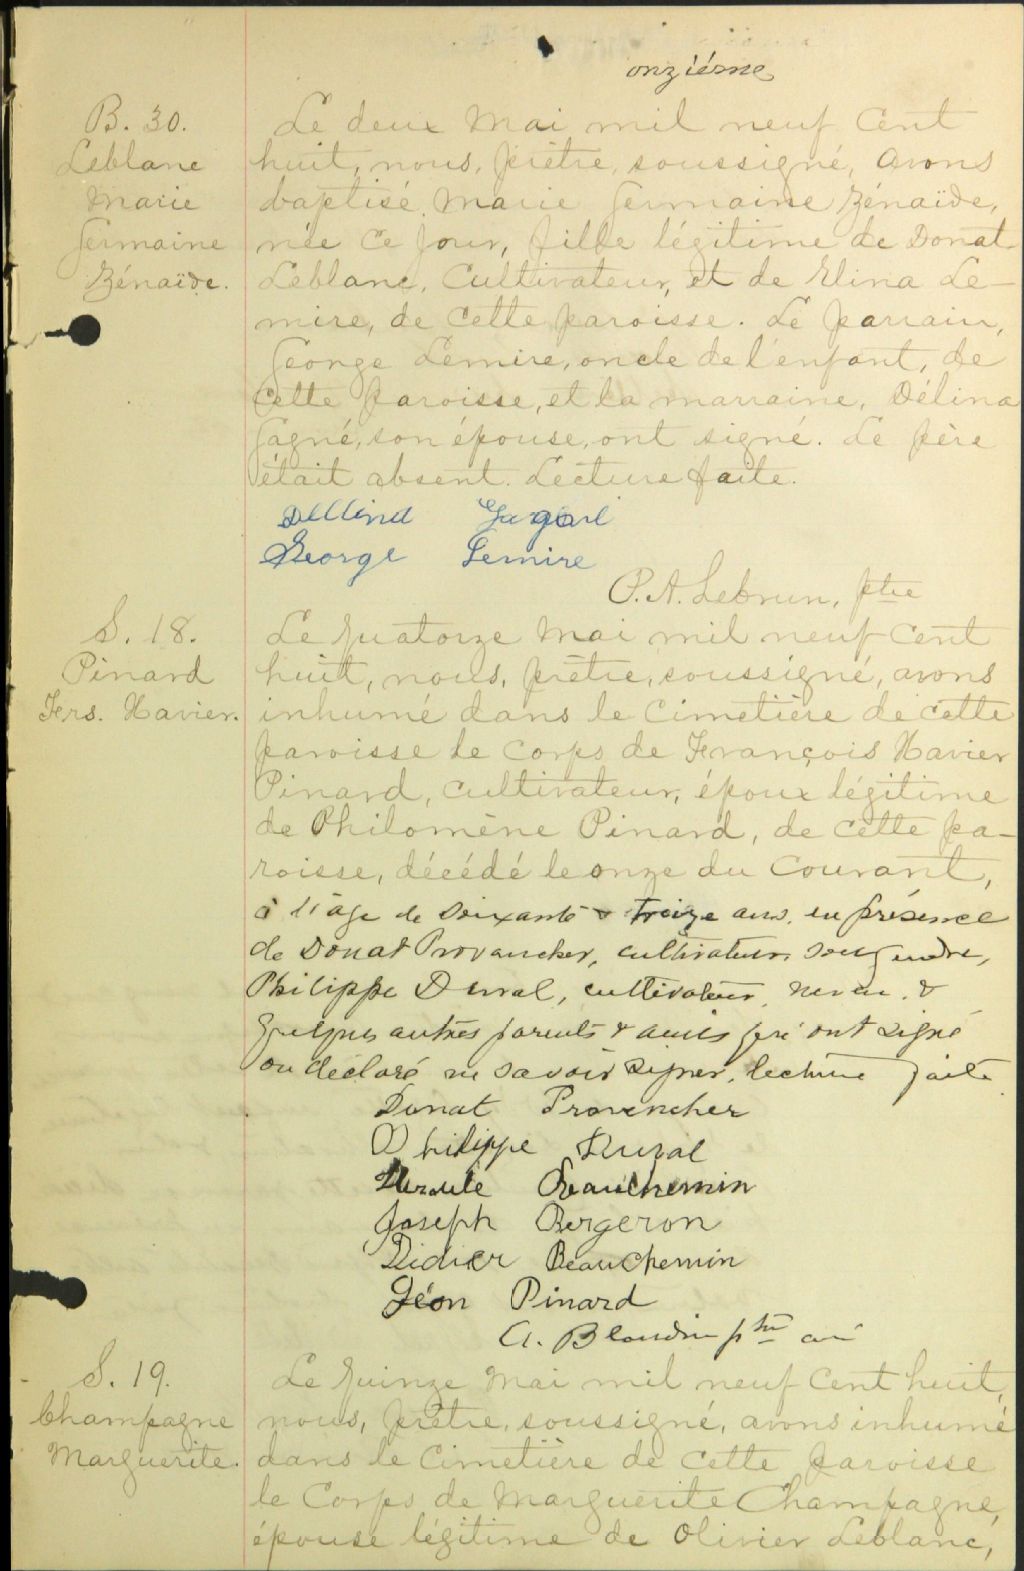 onzième
B. 30.
Leblanc
Marie
Germaine
Zénaïde.
Le deux Mai mil neuf cent
huit, nous, prêtre, soussigné, avons
baptisé Marie Germaine Zénaïde,
née ce jour, fille légitime de Donat
Leblanc, cultivateur, et de Elina Le-
mire, de cette paroisse. Le parrain,
George Lemire, oncle de l'enfant, de
cette paroisse, et la marraine, Délina
Gagné, son épouse, ont signé. Le père
était absent. Lecture faite.
George Lemire
P. A. Lebrun, ptre
S. 18.
Pinard
Frs. Xavier.
Le quatorze Mai mil neuf cent
huit, nous, prêtre, soussigné, avons
inhumé dans le cimetière de cette
paroisse le corps de François Xavier
Pinard, cultivateur, époux légitime
de Philomène Pinard, de cette pa-
roisse, décédé le onze du courant,
à l'âge de soixante & treize ans, en présence
de Donat Provancher, cultivateur, son gendre,
Philippe Duval, cultivateur, neveu, &
quelques autres parents & amis qui ont signé
ou déclaré ne savoir signer, lecture faite
Donat Provencher
Philippe Duval
Beauchemin
Joseph Bergeron
Didier Beauchemin
Léon Pinard
A. Blondin ptre curé
S. 19.
Champagne
Marguerite.
Le quinze Mai mil neuf cent huit,
nous, prêtre, soussigné, avons inhumé
dans le cimetière de cette paroisse
le corps de Marguerite Champagne,
épouse légitime de Olivier Leblanc,